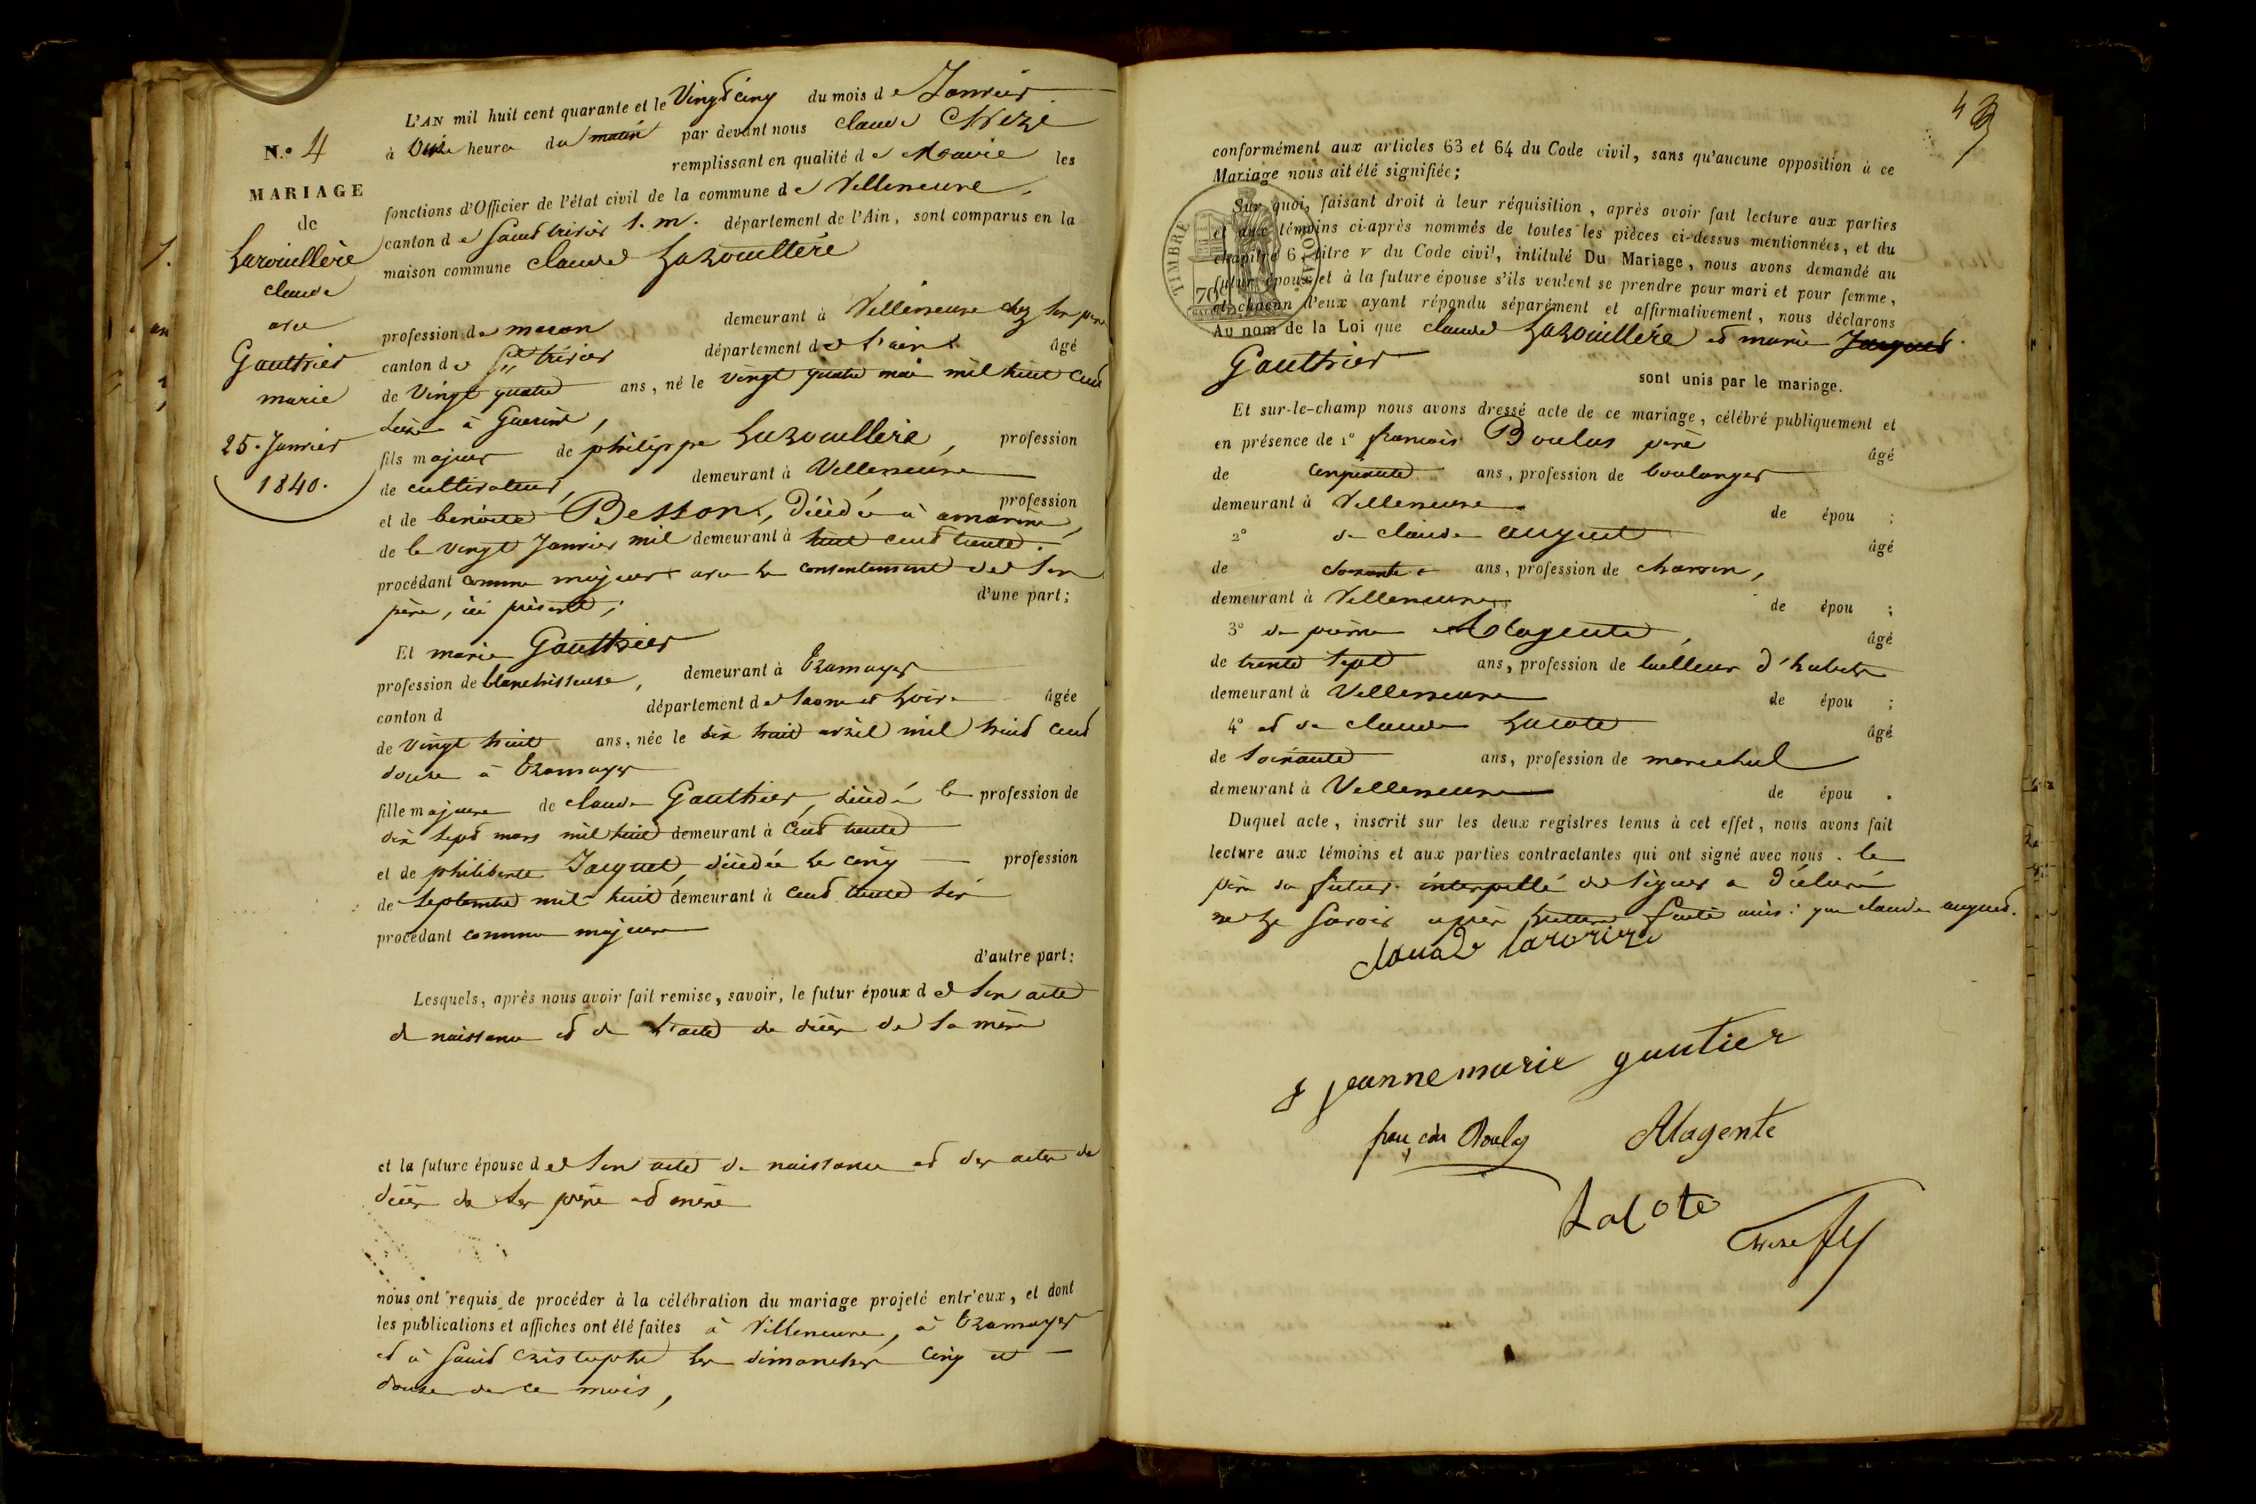 N.° 4
MARIAGE
de
Larouillère
claude
avec
Gauthier
marie
25. Janvier
1840.
L'AN mil huit cent quarante et le Vingt cinq du mois de Janvier
à onze heure du matin par devant nous claude Chize
remplissant en qualité de Maire les
fonctions d'Officier de l'état civil de la commune de Villeneuve,
canton de Saint trivier s. m. département de l'Ain, sont comparus en la
maison commune claude Larouillère
profession de maçon demeurant à Villeneuve chez son père
canton de St trivier département de l'ain âgé
de Vingt quatre ans, né le vingt quatre mai mil huit cent
à Guerins,
fils majeur de philippe Larouillère, profession
de cultivateur, demeurant à Villeneuve
et de benoite Besson, décédée à amareins, profession
de le vingt Janvier mil demeurant à huit cent trente.
procédant comme majeur avec le consentement de son
père, ici présent; d'une part;
Et marie Gauthier
profession de blanchisseuse, demeurant à tramayes
canton d département de Saone et Loire âgée
de vingt huit ans, née le dix huit avril mil huit cent
douze à tramayes
fille majeure de claude Gauthier, décédé le profession de
dix sept mars mil huit demeurant à cent trente
et de philiberte Jacquet, décédée le cinq profession
de septembre mil huit demeurant à cent trente six
procédant comme majeure
d'autre part:
Lesquels, après nous avoir fait remise, savoir, le futur époux de son acte
de naissance et de l'acte de décès de sa mère
et la future épouse de son acte de naissance et des actes de
décès de ses père et mère
nous ont requis de procéder à la célébration du mariage projeté entr'eux, et dont
les publications et affiches ont été faites à Villeneuve, à tramayes
et à Saint Cristophe les dimanches cinq et
douze de ce mois,
conformément aux articles 63 et 64 du Code civil, sans qu'aucune opposition à ce
Mariage nous ait été signifiée;
Sur quoi, faisant droit à leur réquisition, après avoir fait lecture aux parties
et aux témoins ci-après nommés de toutes les pièces ci-dessus mentionnées, et du
chapitre 6, titre V du Code civil, intitulé Du Mariage, nous avons demandé au
futur époux et à la future épouse s'ils veulent se prendre pour mari et pour femme,
et chacun d'eux ayant répondu séparément et affirmativement, nous déclarons
Au nom de la Loi que claude Larouillère et marie Jacquet
Gauthier
sont unis par le mariage.
TIMBRE ROYAL
70c
Et sur-le-champ nous avons dressé acte de ce mariage, célébré publiquement et
en présence de 1° francois Boulas père âgé
de cinquante ans, profession de boulanger
demeurant à Villeneuve de épou ;
2° de claude auguet âgé
de ans, profession de charron,
demeurant à Villeneuve de épou ;
3° de pierre Alagente, âgé
de trente sept ans, profession de tailleur d'habits
demeurant à Villeneuve de épou ;
4° et de claude Lacote âgé
de soixante ans, profession de marechal
demeurant à Villeneuve de épou .
Duquel acte, inscrit sur les deux registres tenus à cet effet, nous avons fait
lecture aux témoins et aux parties contractantes qui ont signé avec nous. le
père du futur interpellé de signer a déclaré
ne le savoir après lecture faite ainsi que claude auguet.
jeanne marie gautier
Alagente
Lacote
Chize